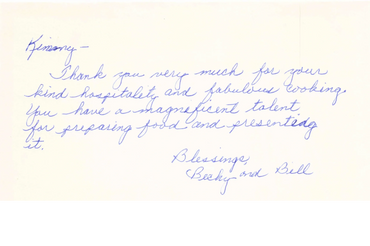 Kimsny -
Thank you very much for your
kind hospitality and fabulous cooking.
You have a magnificent talent
for preparing food and presenting
it.
Blessings,
Becky and Bill